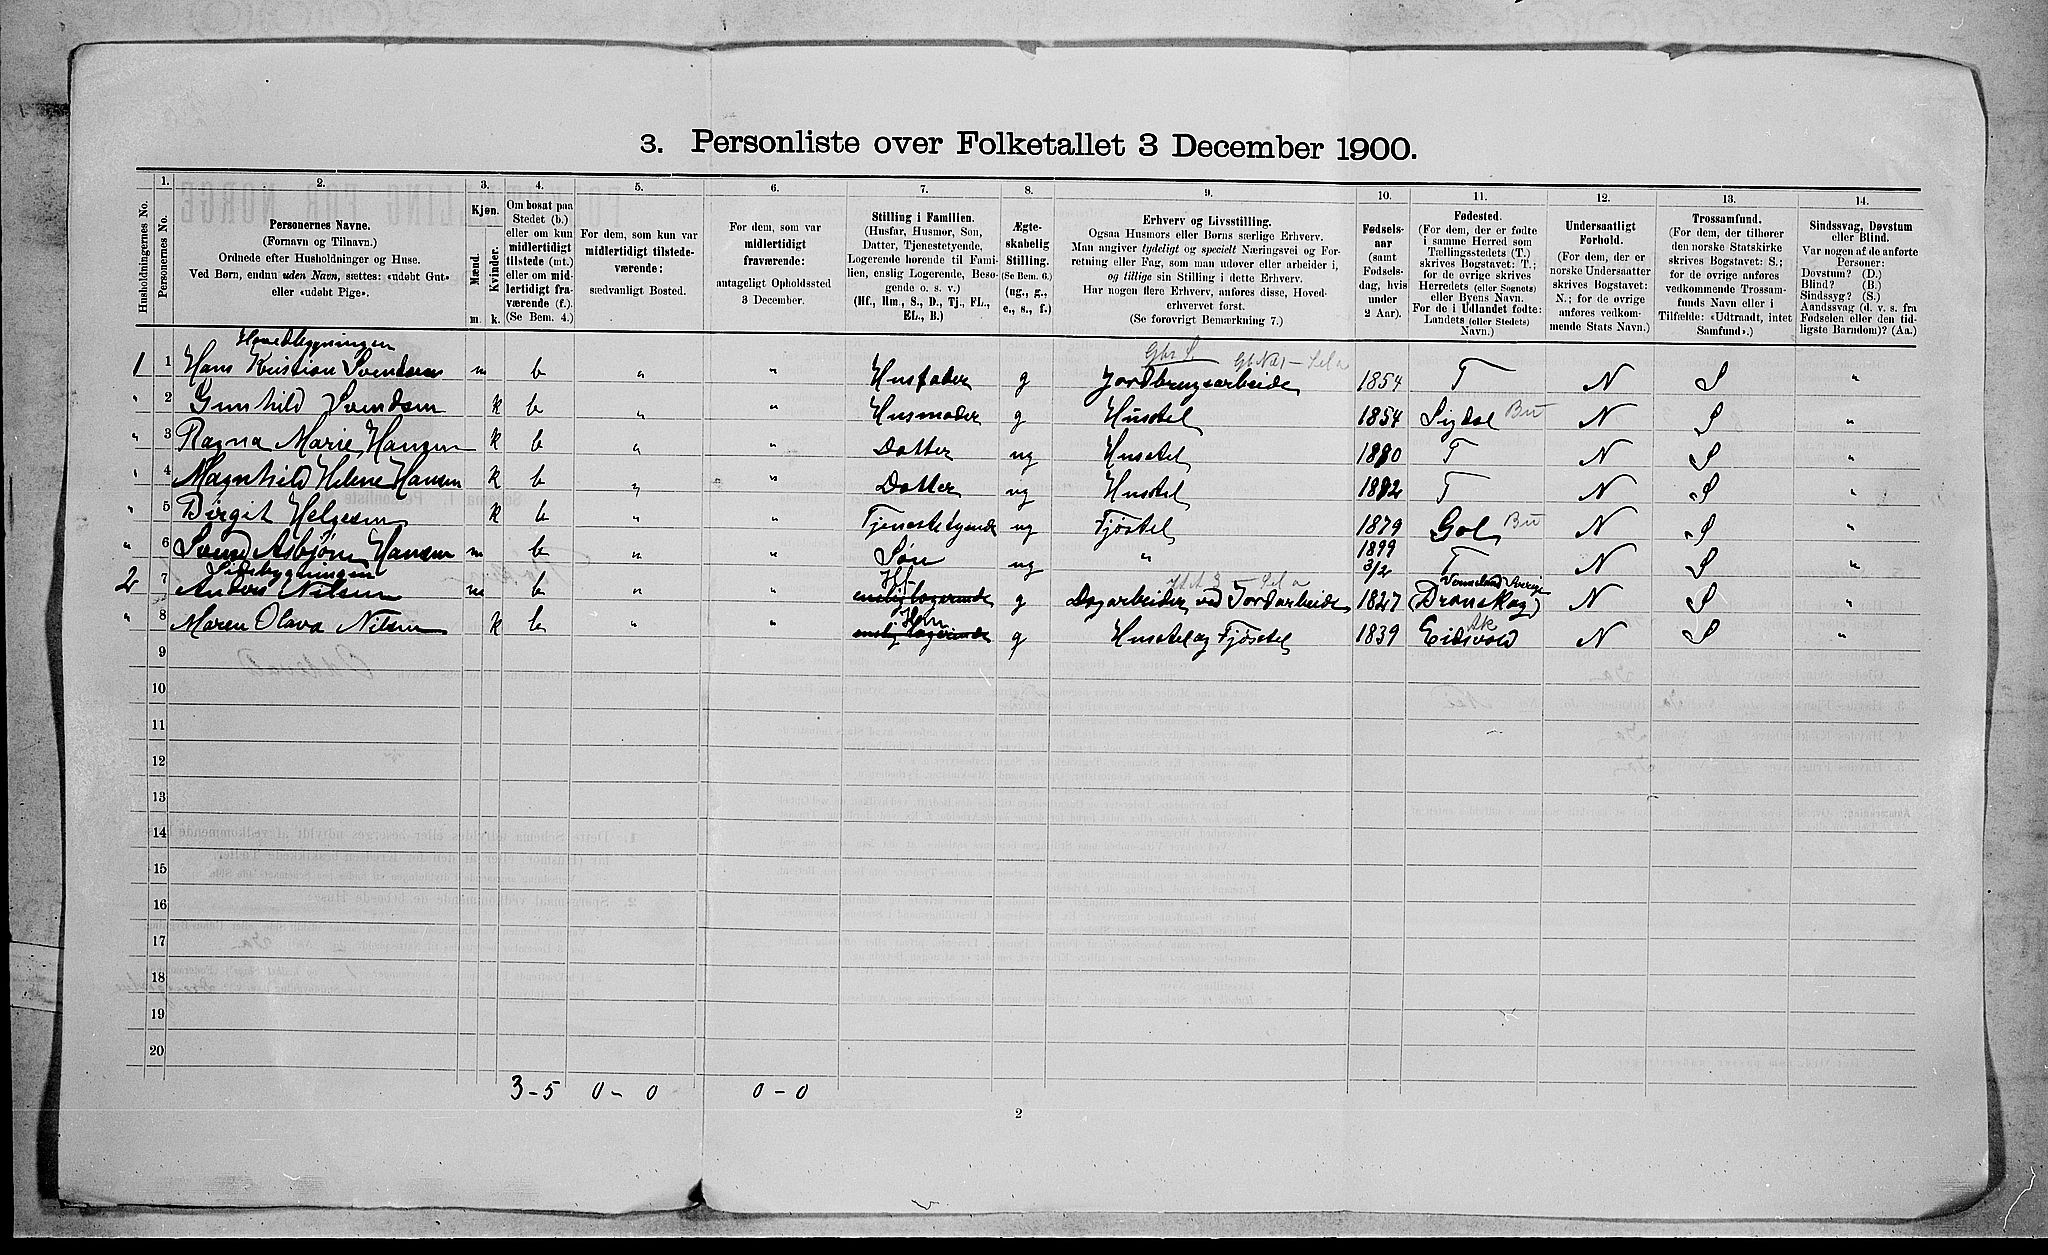 3. Personliste over Folketallet 3 December 1900.
Husholdningernes No.
1. Personernes No.
2.
Personernes Navne.
(Fornavn og Tilnavn.)
Ordnede efter Husholdninger og Huse.
Ved Børn, endnu uden Navn, sættes: «udøbt Gut»
eller «udøbt Pige».
3.
Kjøn.
Mænd.
Kvinder.
m. k.
4.
Om bosat paa
Stedet (b.)
eller om kun
midlertidigt
tilstede (mt.)
eller om mid-
lertidigt fra-
værende (f.).
(Se Bem. 4.)
5.
For dem, som kun var
midlertidigt tilstede-
værende:
sædvanligt Bosted.
6.
For dem, som var
midlertidigt
fraværende:
antageligt Opholdssted
3 December.
7.
Stilling i Familien.
(Husfar, Husmor, Søn,
Datter, Tjenestetyende,
Logerende hørende til Fami-
lien, enslig Logerende, Besø-
gende o. s. v.)
(Hf., Hm., S., D., Tj., FL.,
EL., B.)
8.
Ægte-
skabelig
Stilling.
(Se Bem. 6.)
(ug., g.,
e., s., f.)
9.
Erhverv og Livsstilling.
Ogsaa Husmors eller Børns særlige Erhverv.
Man angiver tydeligt og specielt Næringsvei og For-
retning eller Fag, som man udøver eller arbeider i,
og tillige sin Stilling i dette Erhverv.
Har nogen flere Erhverv, anføres disse, Hoved-
erhvervet først.
(Se forøvrigt Bemærkning 7.)
10.
Fødsels-
aar
(samt
Fødsels-
dag, hvis
under
2 Aar).
11.
Fødested.
(For dem, der er fødte
i samme Herred som
Tællingsstedets (T.)
skrives Bogstavet: T.;
for de øvrige skrives
Herredets (eller Sognets)
eller Byens Navn.
For de i Udlandet fødte:
Landets (eller Stedets)
Navn.)
12.
Undersaatligt
Forhold.
(For dem, der er
norske Undersaatter
skrives Bogstavet:
N.; for de øvrige
anføres vedkom-
mende Stats Navn.)
13.
Trossamfund.
(For dem, der tilhører
den norske Statskirke
skrives Bogstavet: S.;
for de øvrige anføres
vedkommende Trossam-
funds Navn eller i
Tilfælde: «Udtraadt, intet
Samfund».)
14.
Sindssvag, Døvstum
eller Blind.
Var nogen af de anførte
Personer:
Døvstum? (D.)
Blind? (B.)
Sindssyg? (S.)
Aandssvag (d. v. s. fra
Fødselen eller den tid-
ligste Barndom)? (Aa.)
Hovedbygningen
1 1 Hans Kristian Svendsen m b " " Husfader g Jordbrugsarbeide 1854 T N S "
" 2 Gunhild Svendsen k b " " Husmoder g Husstel 1854 Sigdal Bu N S "
" 3 Ragna Marie Hansen k b " " Datter ug Husstel 1880 T N S "
" 4 Magnhild Helene Hansen k b " " Datter ug Husstel 1882 T N S "
" 5 Birgit Helgesen k b " " Tjenestetyende ug Fjøstel 1879 Gol Bu N S "
" 6 Svend Asbjørn Hansen m b " " Søn ug " 1899 3/2 T N S "
Sidebygningen
2 7 Anders Nilsen m b " " Hf enslig logerende g Dagarbeider ved Jordarbeide 1827 (Dranskog) N S "
" 8 Maren Olava Nilsen k b " " Hm enslig logerende g Husstel og Fjøsstel 1839 Eidsvold Ak N S "
9
10
11
12
13
14
15
16
17
18
19
20
3 - 5 0 - 0 0 - 0
2